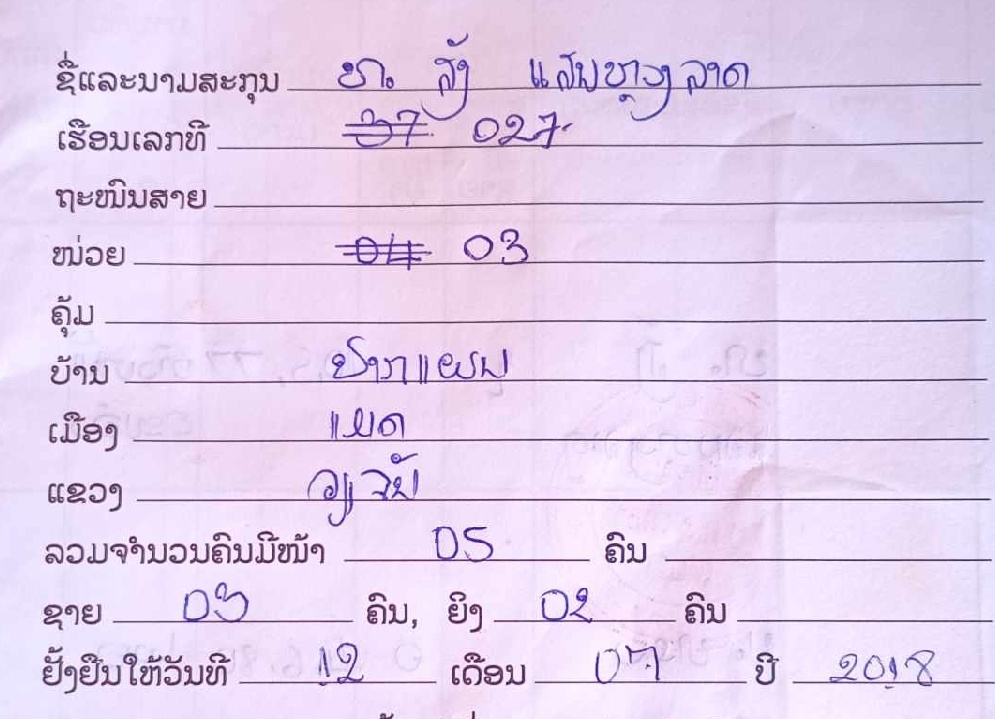 ຊື່ແລະນາມສະກຸນ ທ. ສັງ ແສນຫຼວງລາດ
ເຮືອນເລກທີ 027
ຖະໜົນສາຍ
ໜ່ວຍ 03
ຄຸ້ມ
ບ້ານ ປາກແຍນ
ເມືອງ ແມດ
ແຂວງ ວຽງຈັນ
ລວມຈຳນວນຄົນມີໜ້າ 05 ຄົນ
ຊາຍ 03 ຄົນ, ຍິງ 02 ຄົນ
ຢັ້ງຢືນໃຫ້ວັນທີ 12 ເດືອນ 07 ປີ 2018